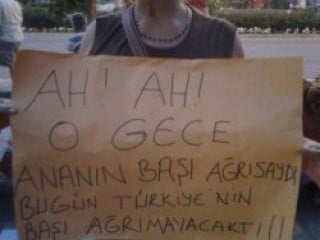 AH! AH!
O GECE
ANANIN BAŞI AĞRISAYDI
BUGÜN TÜRKİYE'NİN
BAŞI AĞRIMAYACAKTI!!!